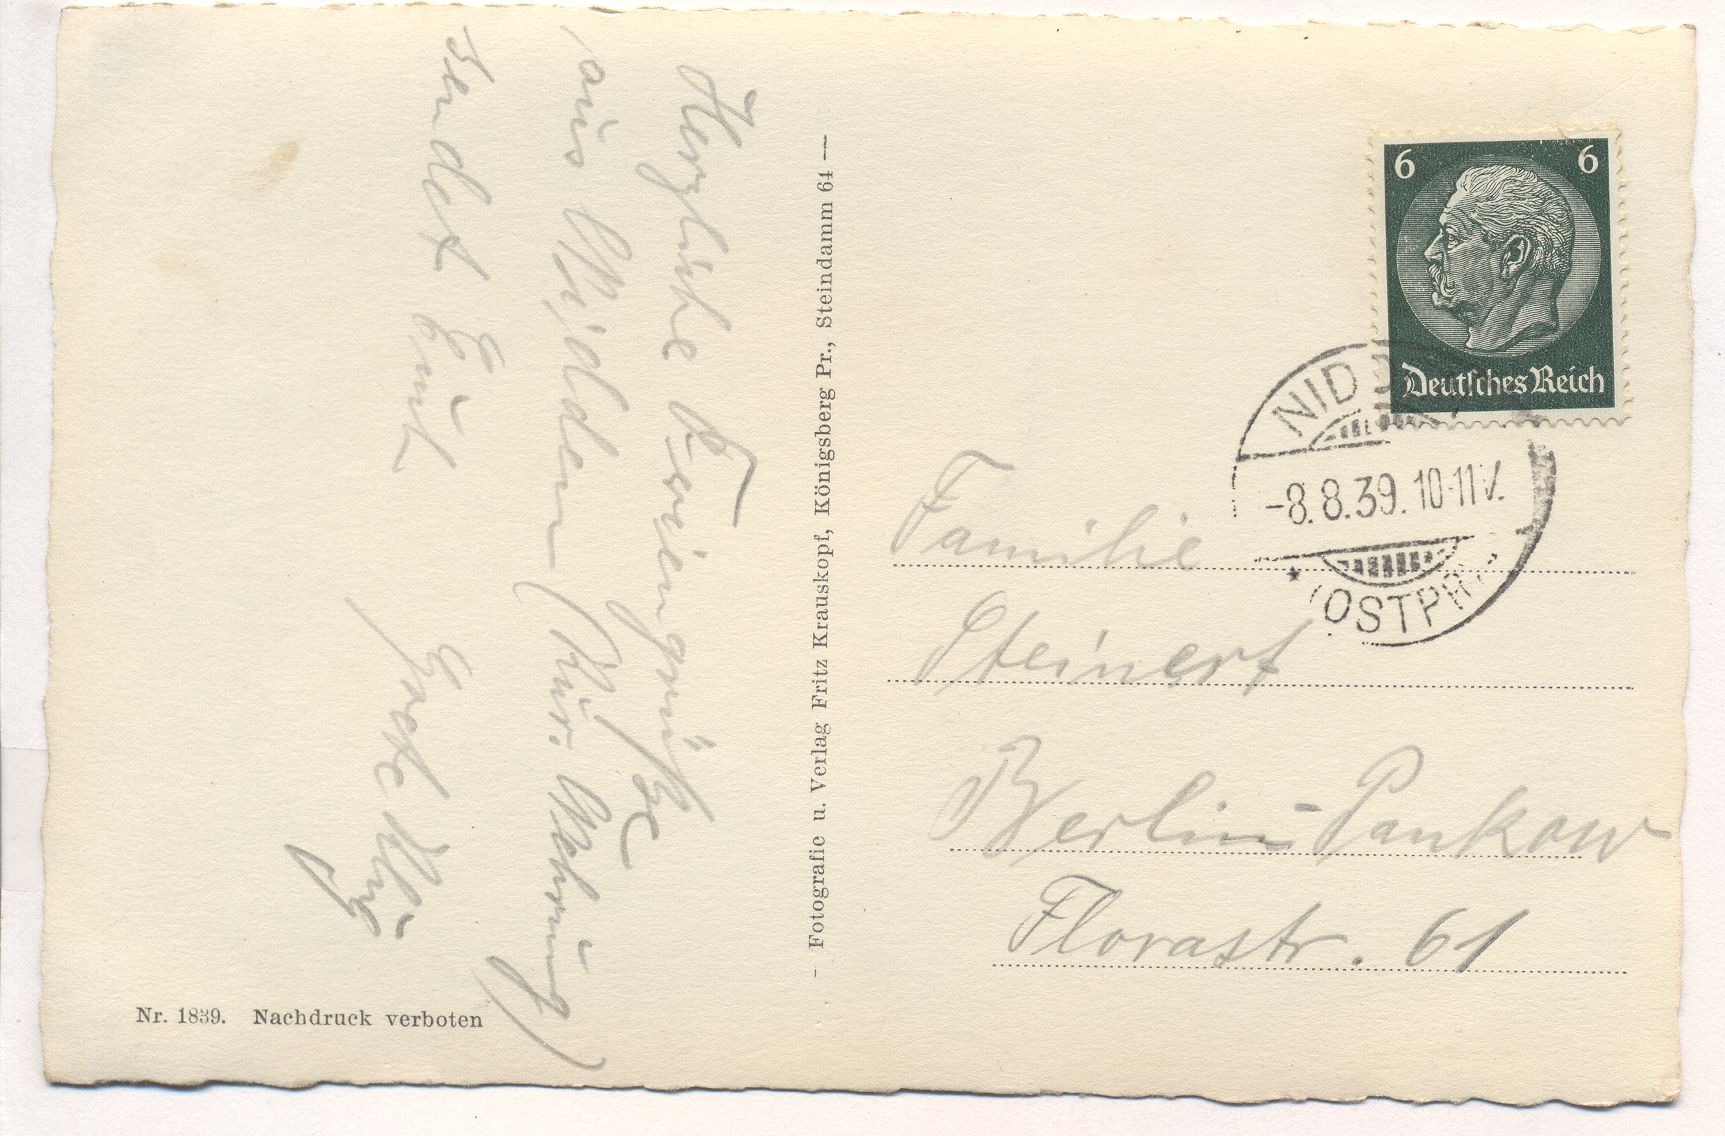 Herzliche Feriengrüße
aus Nidden (Kur. Nehrung)
sendet Euch
Grete
Nr. 1839. Nachdruck verboten
- Fotografie u. Verlag Fritz Krauskopf, Königsberg Pr., Steindamm 64 —
6 6
Deutsches Reich
NID
-8.8.39.10-11V.
(OSTPR
Familie
Steinert
Berlin-Pankow
Florastr. 61